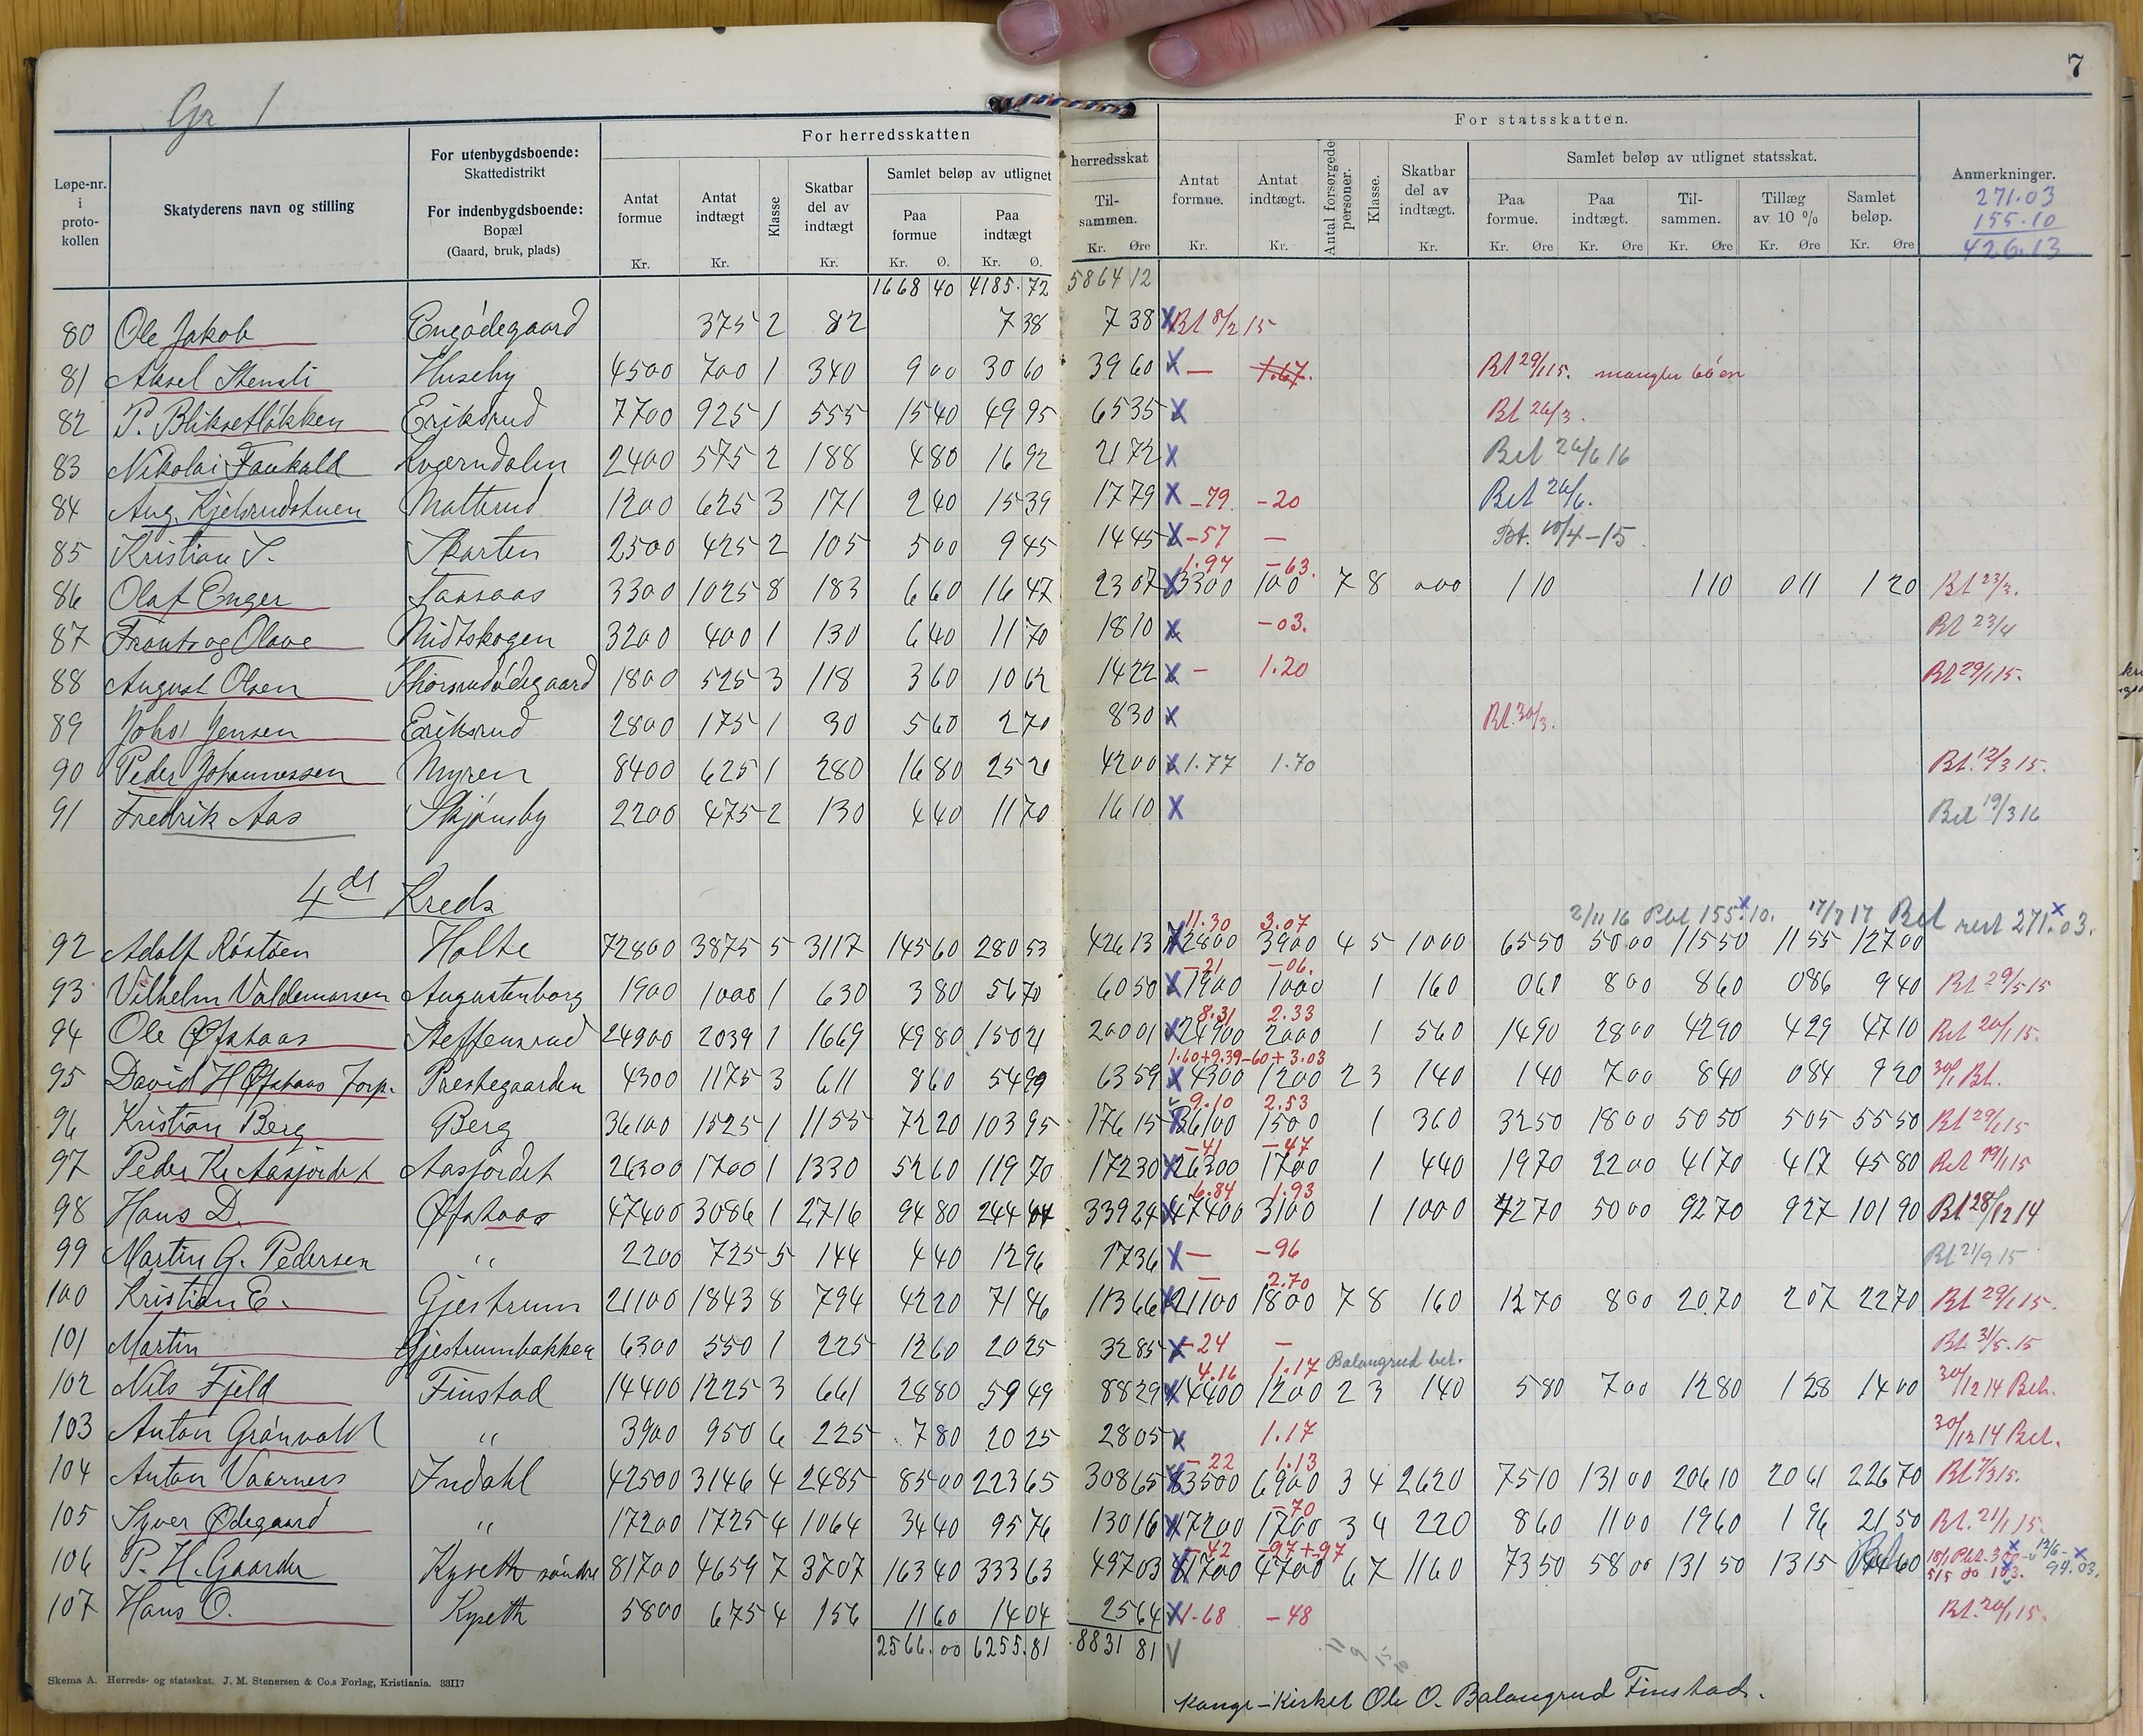 7
Gr 1
Løpe-nr. i proto-kollen
Skatyderens navn og stilling
For utenbygdsboende: Skattedistrikt
For indenbygdsboende: Bopæl (Gaard, bruk, plads)
For herredsskatten
Antat formue Kr.
Antat indtægt Kr.
Klasse
Skatbar del av indtægt Kr.
Samlet beløp av utlignet herredsskat
Paa formue Kr. Ø.
Paa indtægt Kr. Ø.
Til-sammen. Kr. Øre
For statsskatten.
Antat formue. Kr.
Antat indtægt. Kr.
Antal forsørgede personer.
Klasse.
Skatbar del av indtægt. Kr.
Samlet beløp av utlignet statsskat.
Paa formue. Kr. Øre
Paa indtægt. Kr. Øre
Til-sammen. Kr. Øre
Tillæg av 10 % Kr. Øre
Samlet beløp. Kr. Øre
Anmerkninger.
271.03
155.10
426.13
1668 40 4185.72 5864 12
80 Ole Jakob Engødegaard 375 2 82 7 38 7 38 X Bt 8/2 15
81 Aksel Stensli Huseby 4500 700 1 340 9 00 30 60 39 60 X — 1.67. Bt 29/1 15. mangler 60 øre
82 P. Bliksetløkken Eriksrud 7700 925 1 555 15 40 49 95 65 35 X Bt 26/3.
83 Nikolai Faukald Kværndalen 2400 575 2 188 4 80 16 92 21 72 X Bet 26/6 16
84 Aug. Kjelsrudstuen Matterud 1200 625 3 171 2 40 15 39 17 79 X -79. -20 Bet 26/6.
85 Kristian S. Skarten 2500 425 2 105 5 00 9 45 14 45 X -57 — Bt. 10/4-15
1.97 -63.
86 Olaf Enger Taasaas 3300 1025 8 183 6 60 16 47 23 07 X 3300 100 7 8 000 1 10 1 10 0 11 1 20 Bt 23/3.
87 Frants og Olave Midtskogen 3200 400 1 130 6 40 11 70 18 10 X -03. Bt 23/4
88 August Olsen Thorsrudødegaard 1800 525 3 118 3 60 10 62 14 22 X - 1.20 Bt 29/1 15.
89 Johs. Jensen Eriksrud 2800 175 1 30 5 60 2 70 8 30 X Bt. 30/3.
90 Peder Johannessen Myren 8400 625 1 280 16 80 25 20 42 00 X 1.77 1.70 Bt. 12/3 15.
91 Fredrik Aas Skjønsby 2200 475 2 130 4 40 11 70 16 10 X Bet 19/3 16
4de Kreds
2/11 16 Bet 155.10. 17/7 17 Bet rest 271.03.
11.30 3.07
92 Adolf Røstøen Holte 72800 3875 5 3117 145 60 280 53 426 13 X 72800 3900 4 5 1000 65 50 50 00 115 50 11 55 127 00
-21 -06.
93 Vilhelm Valdemarsen Augustenborg 1900 1000 1 630 3 80 56 70 60 50 X 1900 1000 1 160 0 60 8 00 8 60 0 86 9 40 Bt 29/5 15
8.31 2.33
94 Ole Øfstaas Steffensrud 24900 2039 1 1669 49 80 150 21 200 01 X 24900 2000 1 560 14 90 28 00 42 90 4 29 47 10 Bet 20/1 15.
1.60+9.39 -60+3.03
95 David H Øfstaas Forp. Prestegaarden 4300 1175 3 611 8 60 54 99 63 59 X 4300 1200 2 3 140 1 40 7 00 8 40 0 84 9 20 30/1 Bt.
9.10 2.53
96 Kristian Berg Berg 36100 1525 1 1155 72 20 103 95 176 15 X 36100 1500 1 360 32 50 18 00 50 50 5 05 55 50 Bt 29/1 15
-41 -47
97 Peder Kr Aasjordet Aasjordet 26300 1700 1 1330 52 60 119 70 172 30 X 26300 1700 1 440 19 70 22 00 41 70 4 17 45 80 Bet 19/1 15
6.84 1.93
98 Hans D. Øfstaas 47400 3086 1 2716 94 80 244 44 339 24 X 47400 3100 1 1000 42 70 50 00 92 70 9 27 101 90 Bt 28/12 14
99 Martin G. Pedersen " 2200 725 5 144 4 40 12 96 17 36 X — -96 Bt 21/9 15
— 2.70
100 Kristian E. Gjestrum 21100 1843 8 794 42 20 71 46 113 66 X 21100 1800 7 8 160 12 70 8 00 20 70 2 07 22 70 Bt 29/1 15.
101 Martin Gjestrumbakken 6300 550 1 225 12 60 20 25 32 85 X -24 — Bt. 31/5. 15
4.16 1.17 Balangrud bet.
102 Nils Fjeld Finstad 14400 1225 3 661 28 80 59 49 88 29 X 14400 1200 2 3 140 5 80 7 00 12 80 1 28 14 00 30/12 14 Bet.
103 Anton Grønvold " 3900 950 6 225 7 80 20 25 28 05 X 1.17 30/12 14 Bet.
-22 1.13
104 Anton Vaarnes Indahl 42500 3146 4 2485 85 00 223 65 308 65 X 83500 6900 3 4 2620 75 10 131 00 206 10 20 61 226 70 Bt 7/3 15.
-70
105 Syver Ødegaard " 17200 1725 4 1064 34 40 95 76 130 16 X 17200 1700 3 4 220 8 60 11 00 19 60 1 96 21 50 Bt. 21/1 15.
-42 -97+97
106 P. H. Gaarder Kyseth søndre 81700 4659 7 3707 163 40 333 63 497 03 X 81700 4700 6 7 1160 73 50 58 00 131 50 13 15 144 60 94.03.
107 Hans O. Kyseth 5800 675 4 156 11 60 14 04 25 64 X 1.68 -48 Bt. 20/1 15.
2566.00 6255.81 8831 81 V
Skema A. Herreds- og statsskat. J. M. Stenersen & Co.s Forlag, Kristiania. 33117
Kange-Kirket Ole O. Balangrud Finstad.